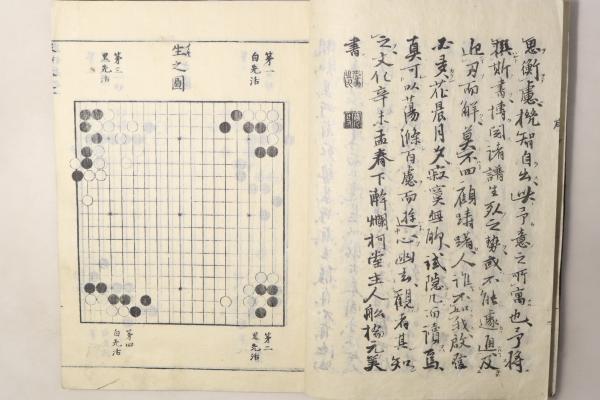 思衡慮 智自出此予意之所寓也予將
撰斯書博閲諸譜生死之勢或不能遽
迎刃而解莫不四顧躊躇人誰不如我啟發
不多花晨月夕寂寞無聊試隠几而讀焉
真可以蕩滌百慮而遊心幽玄觀者其知
之文化辛未孟春下澣爛柯堂主人舩橋元美
書
第一
白先活
生之圖
第三
黒先活
第二
黒先活
第四
白先活